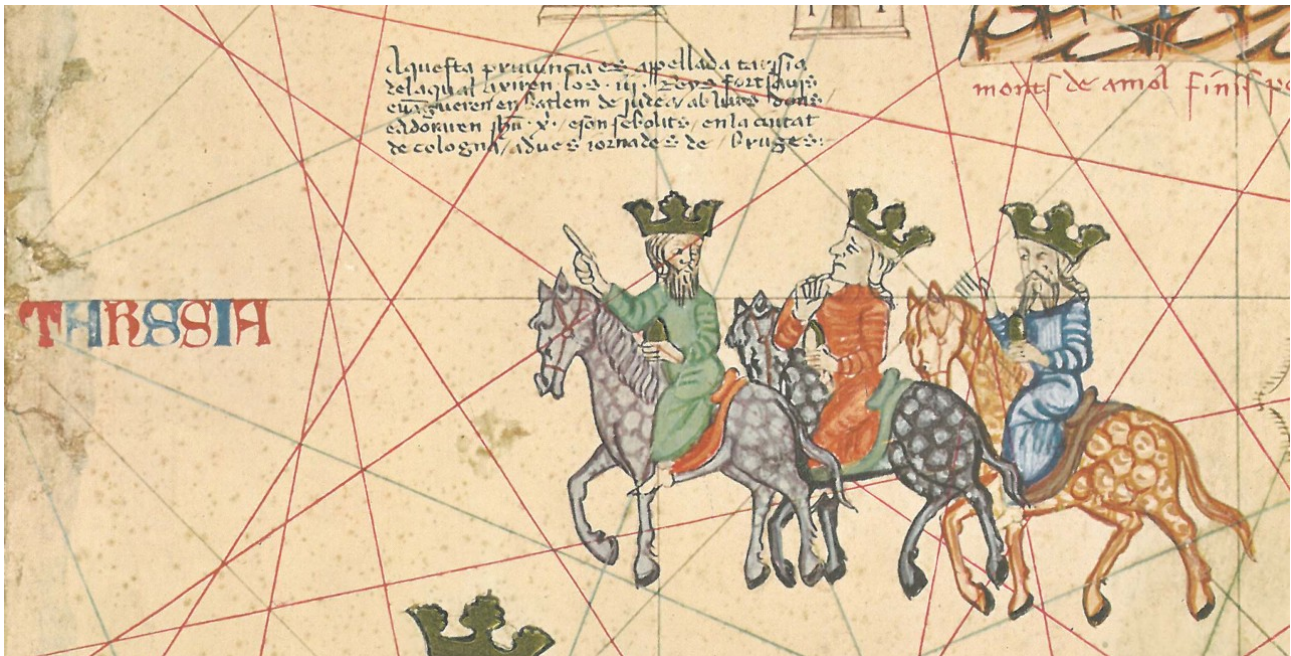 Aquesta prouincia es appellada tarssia
delaqual axiren los · iij · Reys fort sauis
euangueren en batlem de judea / ab lurs dons
eadoraren ihu · x̄ · / eson sebolits / en la ciutat
de cologna / adues jornades de / bruges :
monts de amol finis
TARSSIA